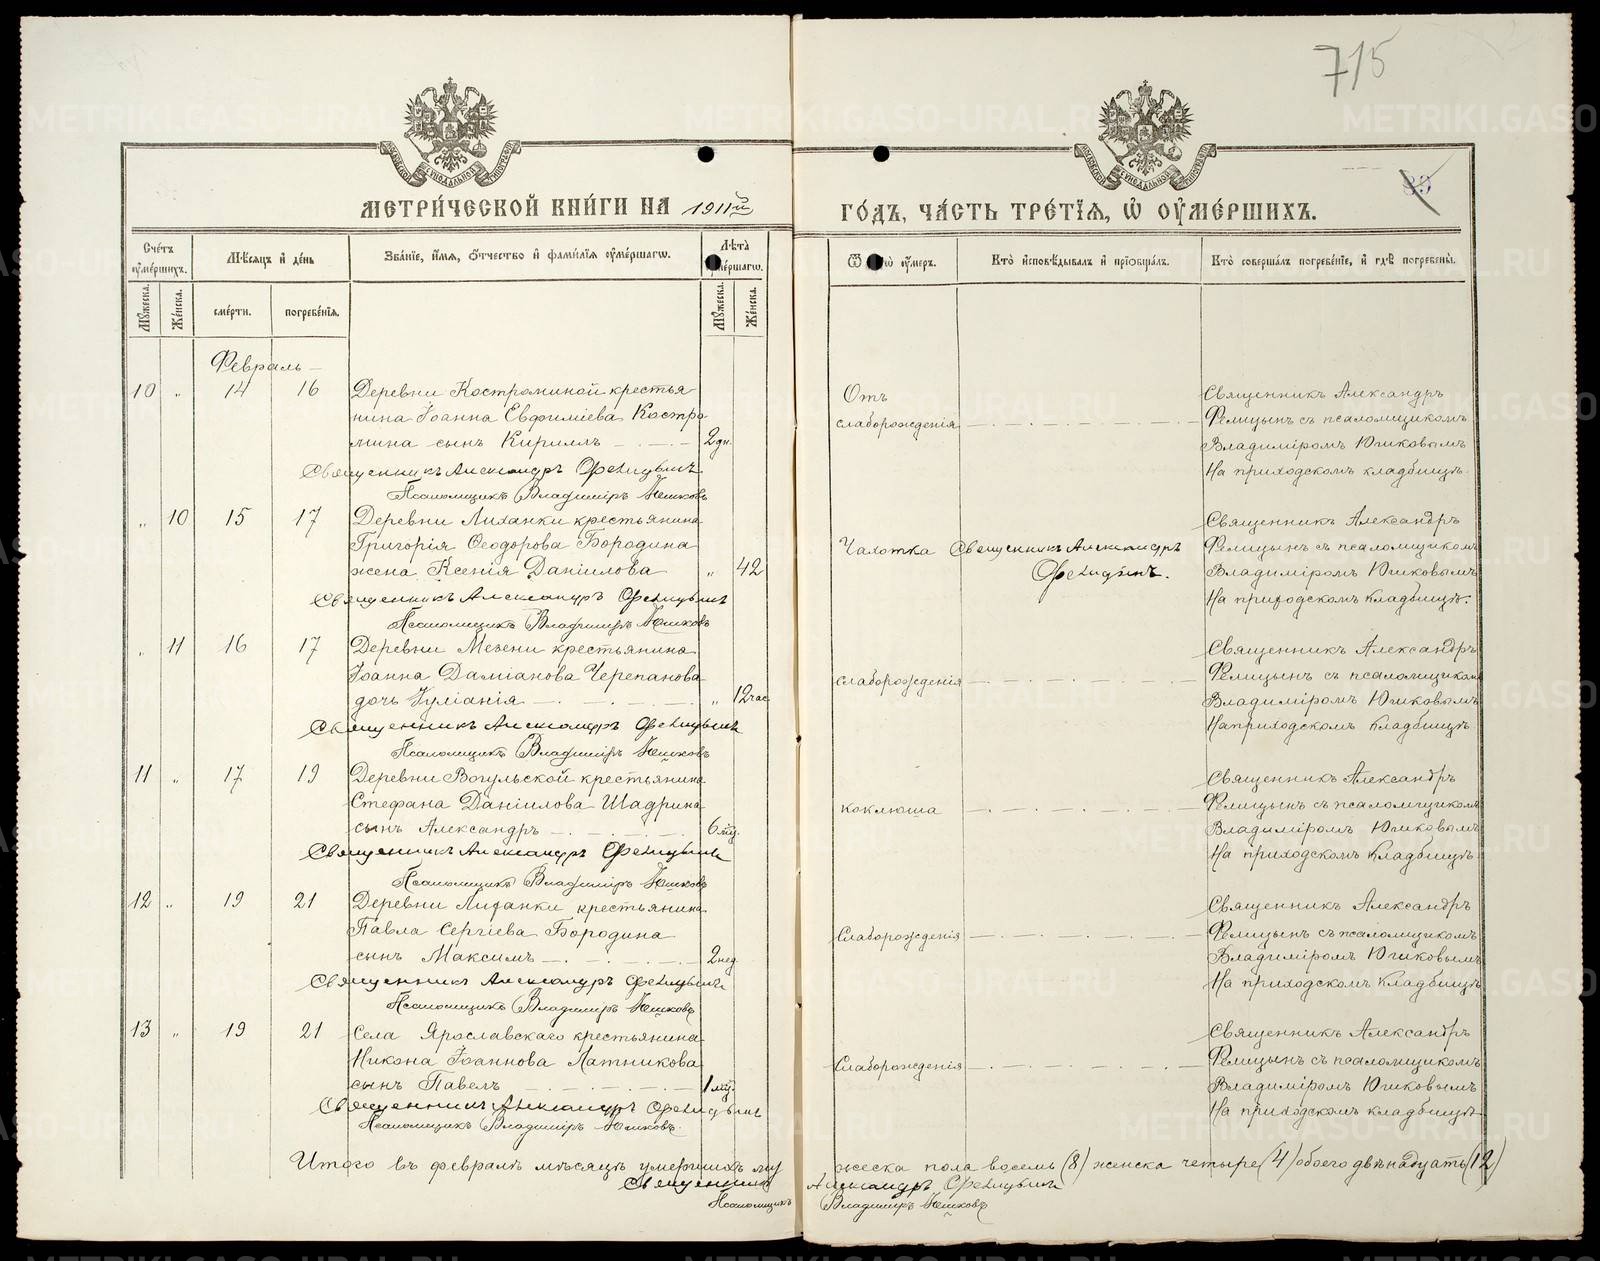 715
МЕТРИ́ЧЕСКОЙ КНИ́ГИ НА 1911й
ГО́ДЪ, ЧА́СТЬ ТРЕ́ТІѦ, Ѡ ОУМЕ́РШИХЪ.
Сче́тъ оуме́ршихъ.
Мѣ́сѧцъ и де́нь
Зва́нїе, и́мѧ, ѻ́тчество и фами́лїѧ оуме́ршагѡ.
Лѣ́та
Кто̀ и҆сповѣ́дывалъ и҆ прїѡбща́лъ.
Кто̀ соверша́лъ погребе́нїе, и҆ гдѣ̀ погребены̀.
Мꙋ́жеска.
Же́нска.
сме́рти.
погребе́нїѧ.
Мꙋ́жеска.
Же́нска.
Февраль
10 „ 14 16 Деревни Костроминой крестья
нина Іоанна Евфиміева Костро
мина сынъ Кириллъ 2 дн.
Отъ
слаборожденія
Священникъ Александръ
Фелицынъ съ псаломщикомъ
Владиміромъ Юшковымъ
На приходскомъ кладбищѣ
Священникъ Александръ Фелицынъ
Псаломщикъ Владиміръ Юшковъ
„ 10 15 17 Деревни Лиханки крестьянина
Григорія Ѳеодорова Бородина
жена Ксенія Даніилова „ 42
Чахотка
Священникъ Александръ
Фелицынъ.
Священникъ Александръ
Фелицынъ съ псаломщикомъ
Владиміромъ Юшковымъ
На приходскомъ кладбищѣ.
Священникъ Александръ Фелицынъ
Псаломщикъ Владиміръ Юшковъ
„ 11 16 17 Деревни Мезени крестьянина
Іоанна Даміанова Черепанова
дочь Іуліанія „ 12 час.
слаборожденія
Священникъ Александръ
Фелицынъ съ псаломщикомъ
Владиміромъ Юшковымъ
На приходскомъ кладбищѣ
Священникъ Александръ Фелицынъ
Псаломщикъ Владиміръ Юшковъ
11 „ 17 19 Деревни Вогульской крестьянина
Стефана Даніилова Шадрина
сынъ Александръ 6 мц.
коклюша
Священникъ Александръ
Фелицынъ съ псаломщикомъ
Владиміромъ Юшковымъ
На приходскомъ кладбищѣ
Священникъ Александръ Фелицынъ
Псаломщикъ Владиміръ Юшковъ
12 „ 19 21 Деревни Лиханки крестьянина
Павла Сергіева Бородина
сынъ Максимъ 2 нед.
Слаборожденія
Священникъ Александръ
Фелицынъ съ псаломщикомъ
Владиміромъ Юшковымъ
На приходскомъ кладбищѣ
Священникъ Александръ Фелицынъ
Псаломщикъ Владиміръ Юшковъ
13 „ 19 21 Села Ярославскаго крестьянина
Никона Іоаннова Латникова
сынъ Павелъ 1 мц.
Слаборожденія
Священникъ Александръ
Фелицынъ съ псаломщикомъ
Владиміромъ Юшковымъ
На приходскомъ кладбищѣ
Священникъ Александръ Фелицынъ
Псаломщикъ Владиміръ Юшковъ
Итого въ февралѣ мѣсяцѣ умершихъ мужеска пола восемь (8) женска четыре (4) обоего двѣнадцать (12)
Священникъ Александръ Фелицынъ
Псаломщикъ Владиміръ Юшковъ
METRIKI.GASO-URAL.RU